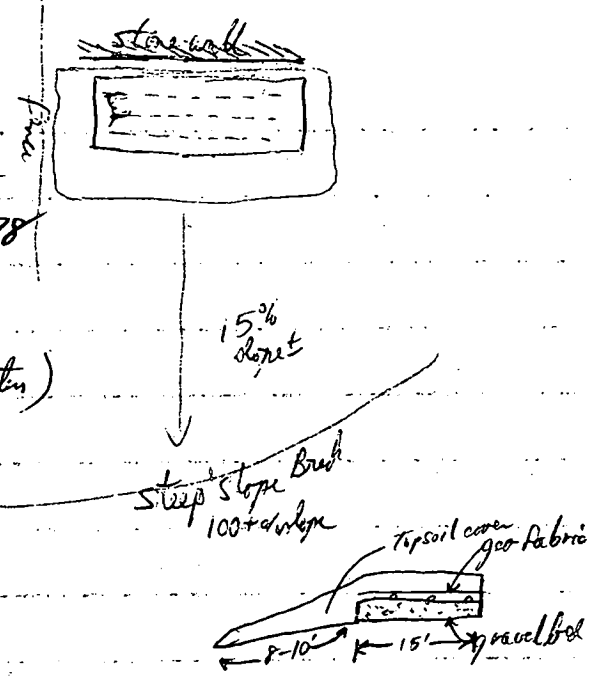 stone wall
fence
78
15%
slope ±
Steep slope Break
100+% slope
Topsoil cover
geo fabric
8-10'
15'
gravel bed